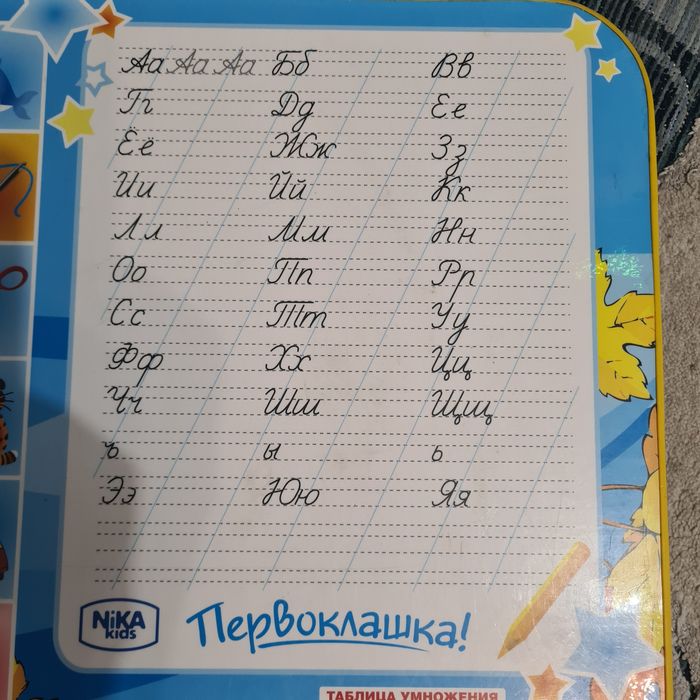 Аа Аа Аа Бб Вв
Гг Дд Ее
Ёё Жж Зз
Ии Йй Кк
Лл Мм Нн
Оо Пп Рр
Сс Тт Уу
Фф Хх Цц
Чч Шш Щщ
ъ ы ь
Ээ Юю Яя
NiKA
kids
Первоклашка!
ТАБЛИЦА УМНОЖЕНИЯ